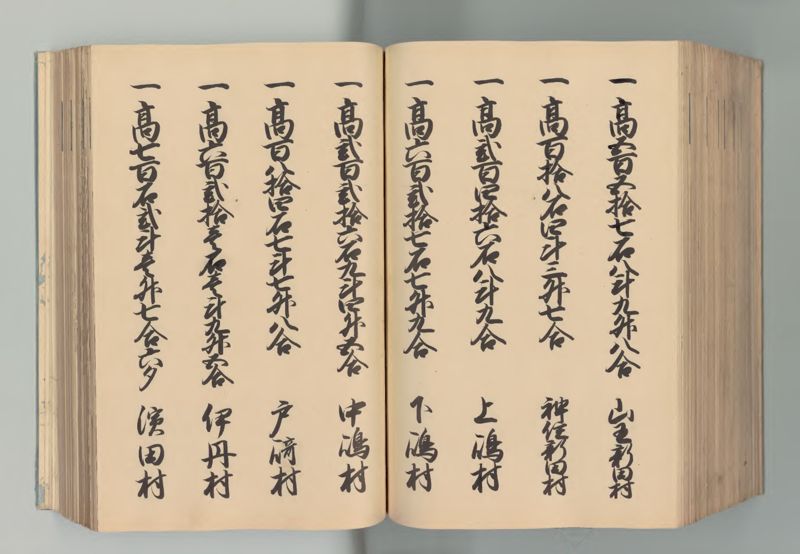 一 高五百五拾七石八斗九升八合 山王新田村
一 高百拾八石四斗三升七合 神住新田村
一 高弐百四拾六石八斗九合 上嶋村
一 高六百弐拾七石七升九合 下嶋村
一 高弐百弐拾六石九斗四升五合 中嶋村
一 高百八拾四石七斗七升八合 戸崎村
一 高六百弐拾壱石壱斗九升五合 伊丹村
一 高七百石弐斗壱升七合六夕 濱田村